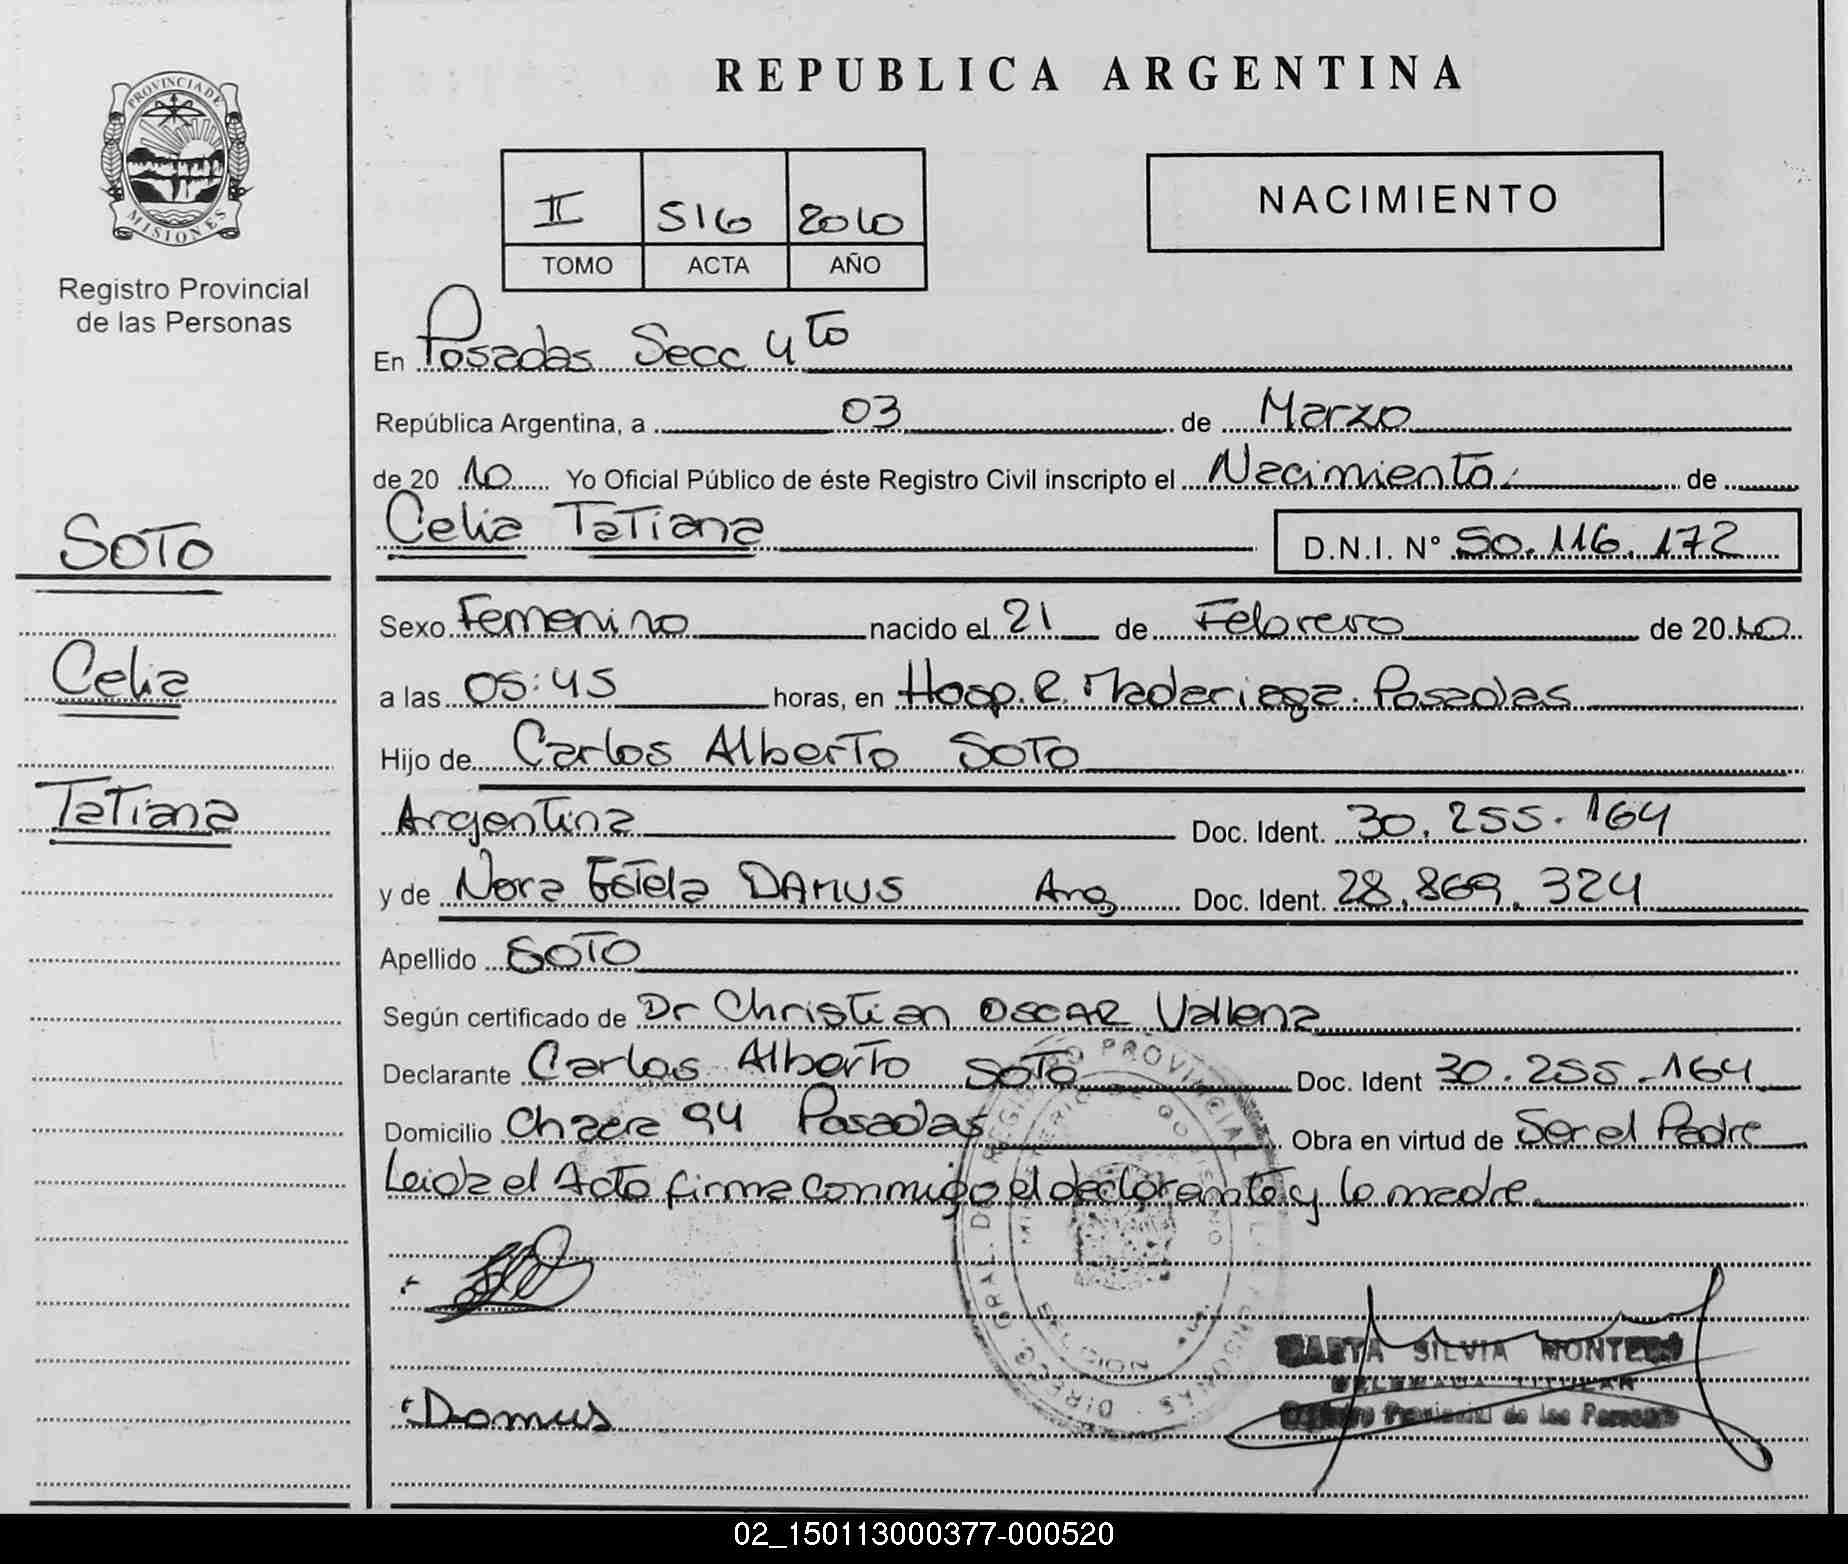 REPUBLICA ARGENTINA
PROVINCIA DE
MISIONES
Registro Provincial
de las Personas
II 516 2010
TOMO ACTA AÑO
NACIMIENTO
En Posadas Secc 4to
República Argentina, a 03 de Marzo
de 2010 Yo Oficial Público de éste Registro Civil inscripto el Nacimiento de
SOTO
Celia Tatiana D.N.I. Nº 50.116.172
Sexo Femenino nacido el 21 de Febrero de 2010
Celia
a las 05:45 horas, en Hosp. R. Madariaga. Posadas
Hijo de Carlos Alberto SOTO
Tatiana
Argentina Doc. Ident. 30.255.164
y de Nora Estela DAMUS Arg Doc. Ident. 28.869.324
Apellido SOTO
Según certificado de Dr Christian OSCAR Vallena
Declarante Carlos Alberto SOTO Doc. Ident 30.255.164
Domicilio Chacra 94 Posadas Obra en virtud de Ser el Padre
Leida el Acto firma conmigo el declarante y la madre.
MARTA SILVIA MONTE
DELEGADA TITULAR
Registro Provincial de las Personas
Damus
02_150113000377-000520